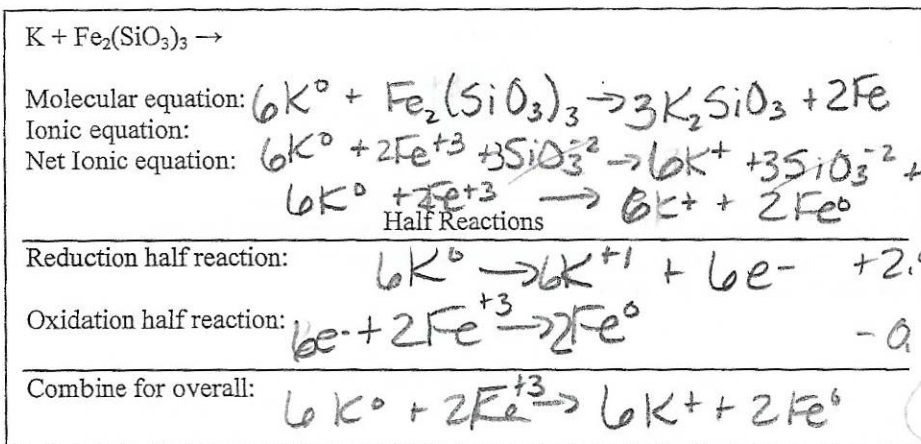 K + Fe₂(SiO₃)₃ →
Molecular equation: 6K⁰ + Fe₂(SiO₃)₃ → 3K₂SiO₃ + 2Fe
Ionic equation:
Net Ionic equation: 6K⁰ + 2Fe⁺³ + 3SiO₃⁻² → 6K⁺ + 3SiO₃⁻² +
6K⁰ + 2Fe⁺³ → 6K⁺ + 2Fe⁰
Half Reactions
Reduction half reaction: 6K⁰ → 6K⁺¹ + 6e- +2.
Oxidation half reaction: 6e- + 2Fe⁺³ → 2Fe⁰ - 0
Combine for overall: 6K⁰ + 2Fe⁺³ → 6K⁺ + 2Fe⁰